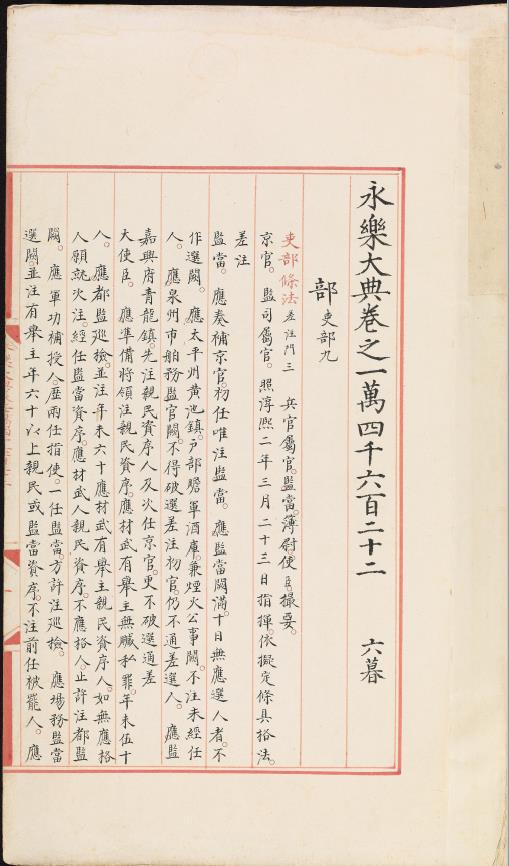 永樂大典卷之一萬四千六百二十二 六暮
部 吏部九
吏部條法 差注門三 兵官屬官。監當。簿尉。使臣。撮要。
京官。監司屬官。照淳熙二年三月二十三日指揮。依擬定條具格法。
差注
監當。應奏補京官。初任唯注監當。應監當闕滿。十日無應選人者。不
作選闕。應太平州黃池鎮。戶部贍軍酒庫。兼煙火公事闕。不注未經任
人。應泉州市舶務監官闕。不得破選差注初官。仍不通差選人。應監
嘉興府青龍鎮。先注親民資序人。及次任京官。更不破選通差
大使臣。應準備將領注親民資序。應材武有舉主無贓私罪。年未伍十
人。應都監巡檢。並注年未六十應材武有舉主親民資序人。如無應格
人願就次注。經任監當資序。應材武人親民資序。不應格人。止許注都監
闕。應軍功補授人。歷兩任指使。一任監當。方許注巡檢。應場務監當
選闕。並注有舉主年六十以上親民或監當資序。不注前任被罷人。應